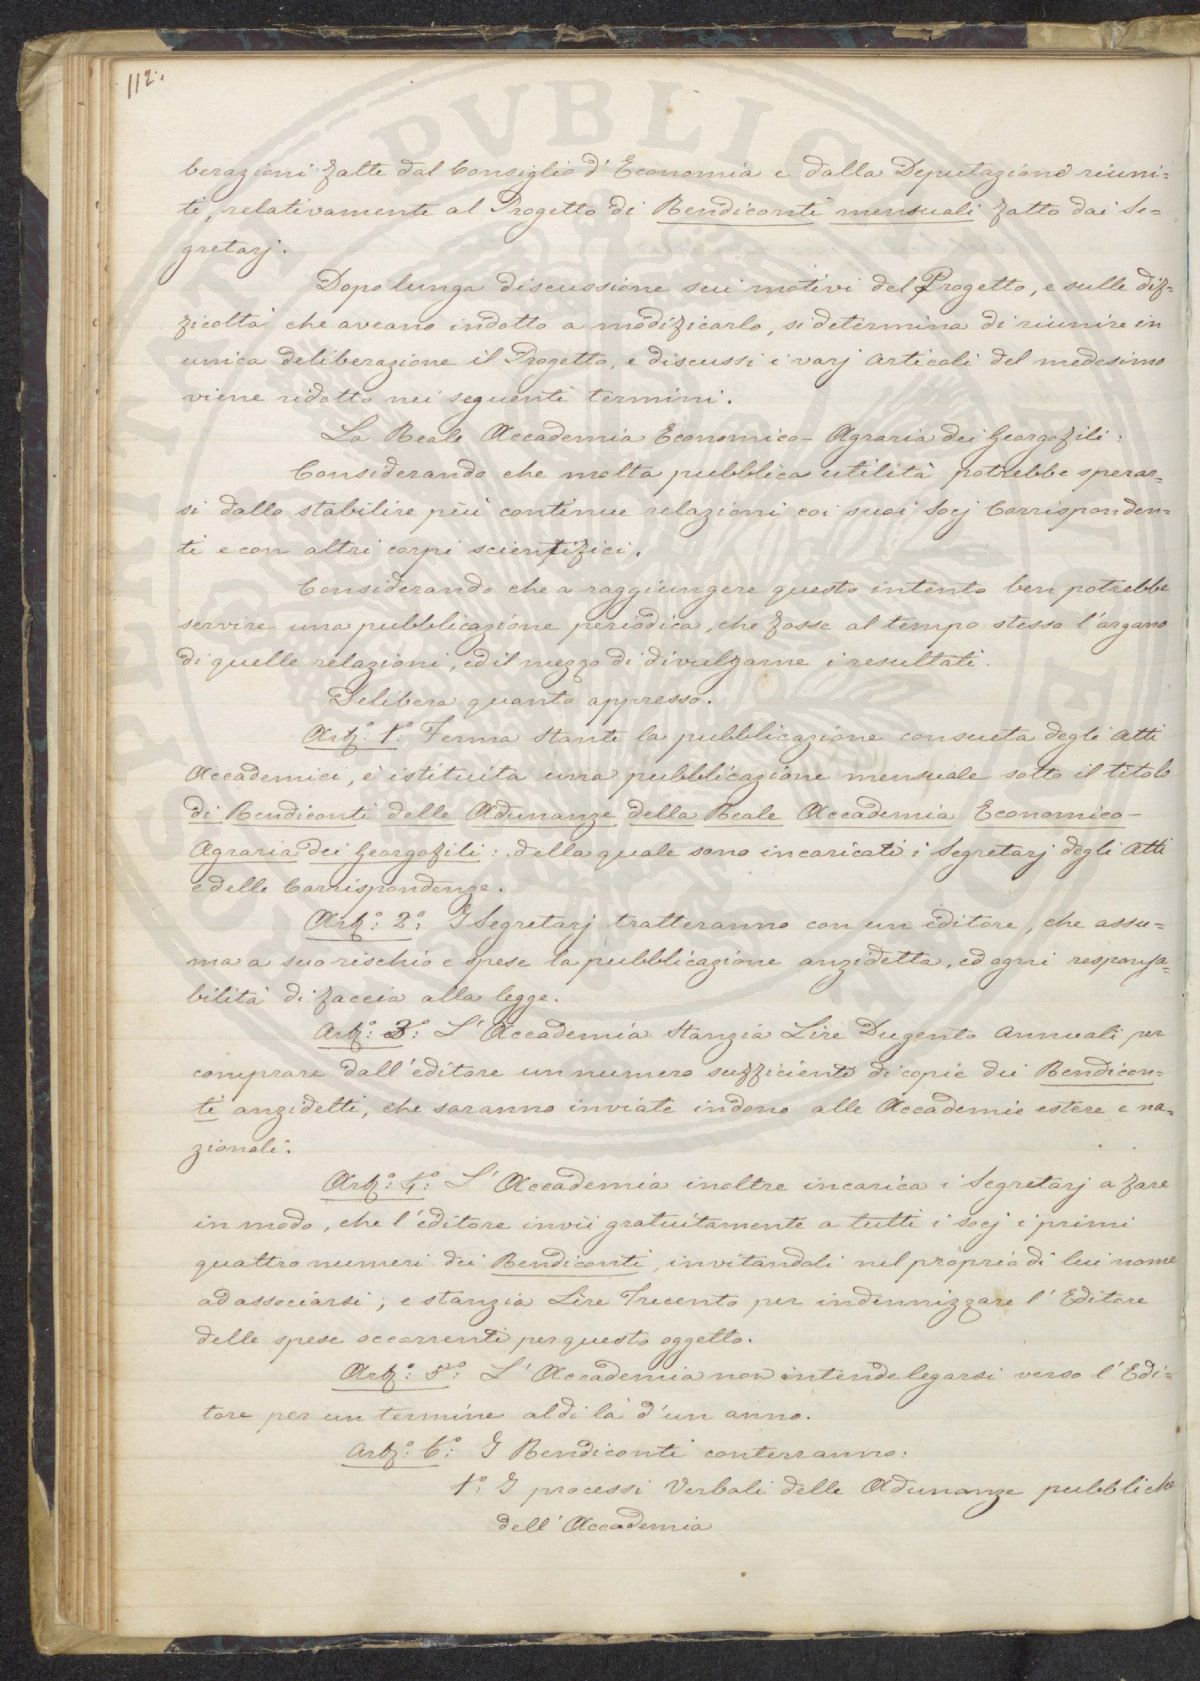 112.
berazioni fatte dal Consiglio d'Economia e dalla Deputazione riuni=
ti, relativamente al Progetto di Rendiconti mensuali fatto dai Se=
gretarj.
Dopo lunga discussione sui motivi del Progetto, e sulle dif=
ficoltà che aveano indotto a modificarlo, si determina di riunire in
unica deliberazione il Progetto, e discussi i varj articoli del medesimo
viene ridotto nei seguenti termini.
La Reale Accademia Economico-Agraria dei Georgofili:
Considerando che molta pubblica utilità potrebbe sperar=
si dallo stabilire più continue relazioni coi suoi Socj Corrisponden=
ti e con altri corpi scientifici.
Considerando che a raggiungere questo intento ben potrebbe
servire una pubblicazione periodica, che fosse al tempo stesso l'organo
di quelle relazioni, ed il mezzo di divulgarne i resultati.
Delibera quanto appresso.
Arto: 1o: Ferma stante la pubblicazione consueta degli Atti
Accademici, è istituita una pubblicazione mensuale sotto il titolo
di Rendiconti delle Adunanze della Reale Accademia Economico-
Agraria dei Georgofili: della quale sono incaricati i Segretarj degli Atti
e delle Corrispondenze.
Arto: 2o: I Segretarj tratteranno con un editore, che assu=
ma a suo rischio e spese la pubblicazione anzidetta, ed ogni responsa=
bilità di faccia alla legge.
Arto: 3o: L'Accademia stanzia Lire Dugento annuali per
comprare dall'editore un numero sufficiente di copie dei Rendicon=
ti anzidetti, che saranno inviate indono alle Accademie estere e na=
zionali.
Arto: 4o: L'Accademia inoltre incarica i Segretarj a fare
in modo, che l'editore invii gratuitamente a tutti i socj i primi
quattro numeri dei Rendiconti, invitandoli nel proprio di lui nome
ad associarsi; e stanzia Lire Trecento per indennizzare l'Editore
delle spese occorrenti per questo oggetto.
Arto: 5o: L'Accademia non intende legarsi verso l'Edi=
tore per un termine al di là d'un anno.
Arto: 6o: I Rendiconti conterranno:
1o: I processi Verbali delle Adunanze pubbliche
dell'Accademia